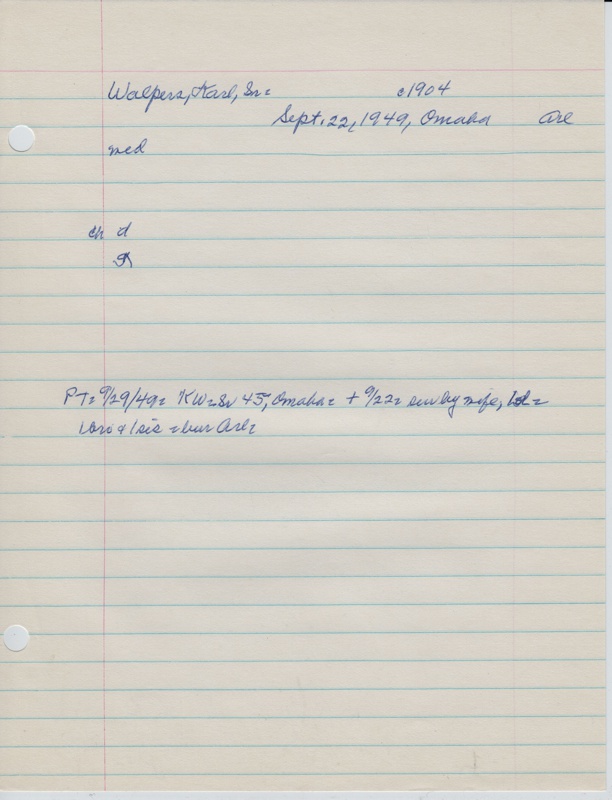 Walpers, Karl, Sr= c1904
Sept. 22, 1949, Omaha Arl
med
ch d
PT= 9/29/49= KW=Sr 45, Omaha= + 9/22= sur by wife, 1d=
1bro & 1sis =bur Arl=